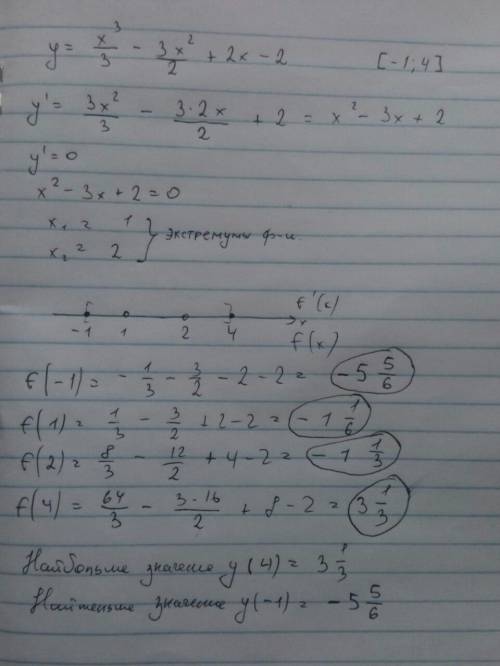 y = x³/3 - 3x²/2 + 2x - 2 [-1; 4]
y' = 3x²/3 - 3·2x/2 + 2 = x² - 3x + 2
y' = 0
x² - 3x + 2 = 0
x₁ = 1
x₂ = 2 } экстремумы ф-и.
f'(x)
-1 1 2 4 x
f(x)
f(-1) = - 1/3 - 3/2 - 2 - 2 = -5 5/6
f(1) = 1/3 - 3/2 + 2 - 2 = -1 1/6
f(2) = 8/3 - 12/2 + 4 - 2 = -1 1/3
f(4) = 64/3 - 3·16/2 + 8 - 2 = 3 1/3
Наибольше значение y(4) = 3 1/3
Наименьше значение y(-1) = -5 5/6